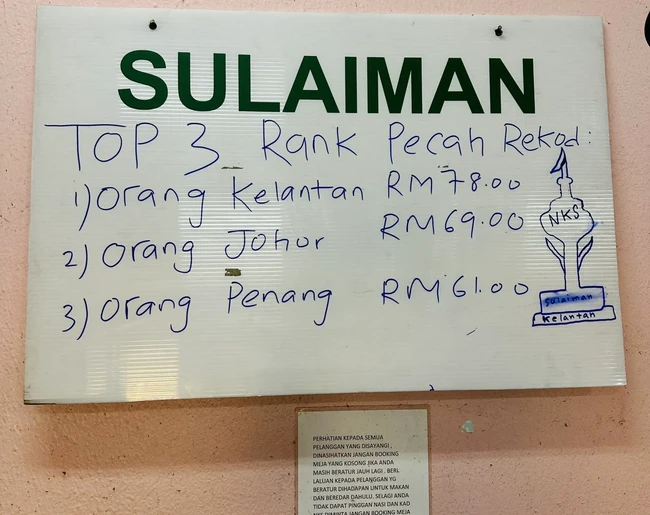 SULAIMAN
TOP 3 Rank Pecah Rekod:
1) Orang Kelantan RM78.00
2) Orang Johor RM69.00
3) Orang Penang RM61.00
NKS
Sulaiman
Kelantan
PERHATIAN KEPADA SEMUA
PELANGGAN YANG DISAYANGI,
DINASIHATKAN JANGAN BOOKING
MEJA YANG KOSONG JIKA ANDA
MASIH BERATUR JAUH LAGI. BERI
LALUAN KEPADA PELANGGAN YG
BERATUR DIHADAPAN UNTUK MAKAN
DAN BEREDAR DAHULU. SELAGI ANDA
TIDAK DAPAT PINGGAN NASI DAN KAD
DIMINTA JANGAN BOOKING MEJA